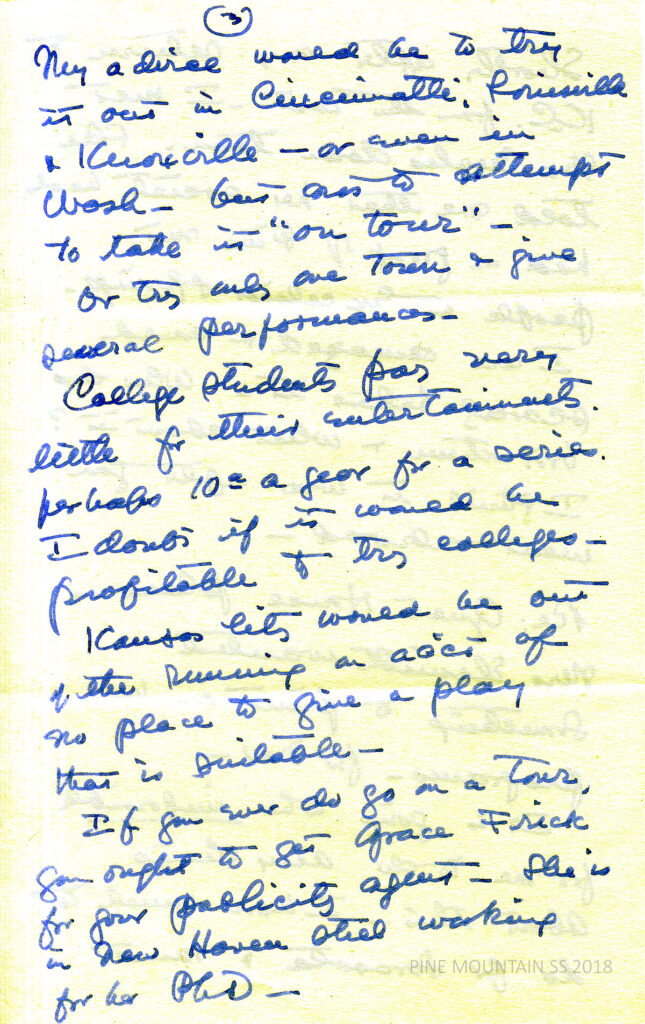 (3)
My advice would be to try
it out in Cincinnatti, Louisville
& Knoxville — or even in
Wash — but not to attempt
to take it "on tour" —
Or try only one town & give
several performances —
College students pay very
little for their entertainments.
perhaps 10 a year for a series.
I doubt if it would be
profitable to try colleges —
Kansas City would be out
of the running on acct of
no place to give a play
that is suitable —
If you ever do go on a tour,
you ought to get Grace Frick
for your publicity agent — She is
in New Haven still working
for her PhD —
PINE MOUNTAIN SS 2018